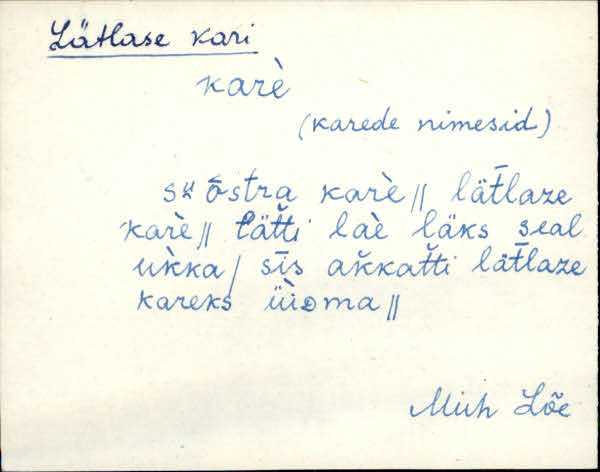 Lätlase kari
karè
(karede nimesid)
sᵘōstra karè // lät̄laze
karè // lätt̆i laè läks seal
uk̀ka / sīs ak̆katt̆i lät̄laze
kareks üìᴅma //
Mih Lõe